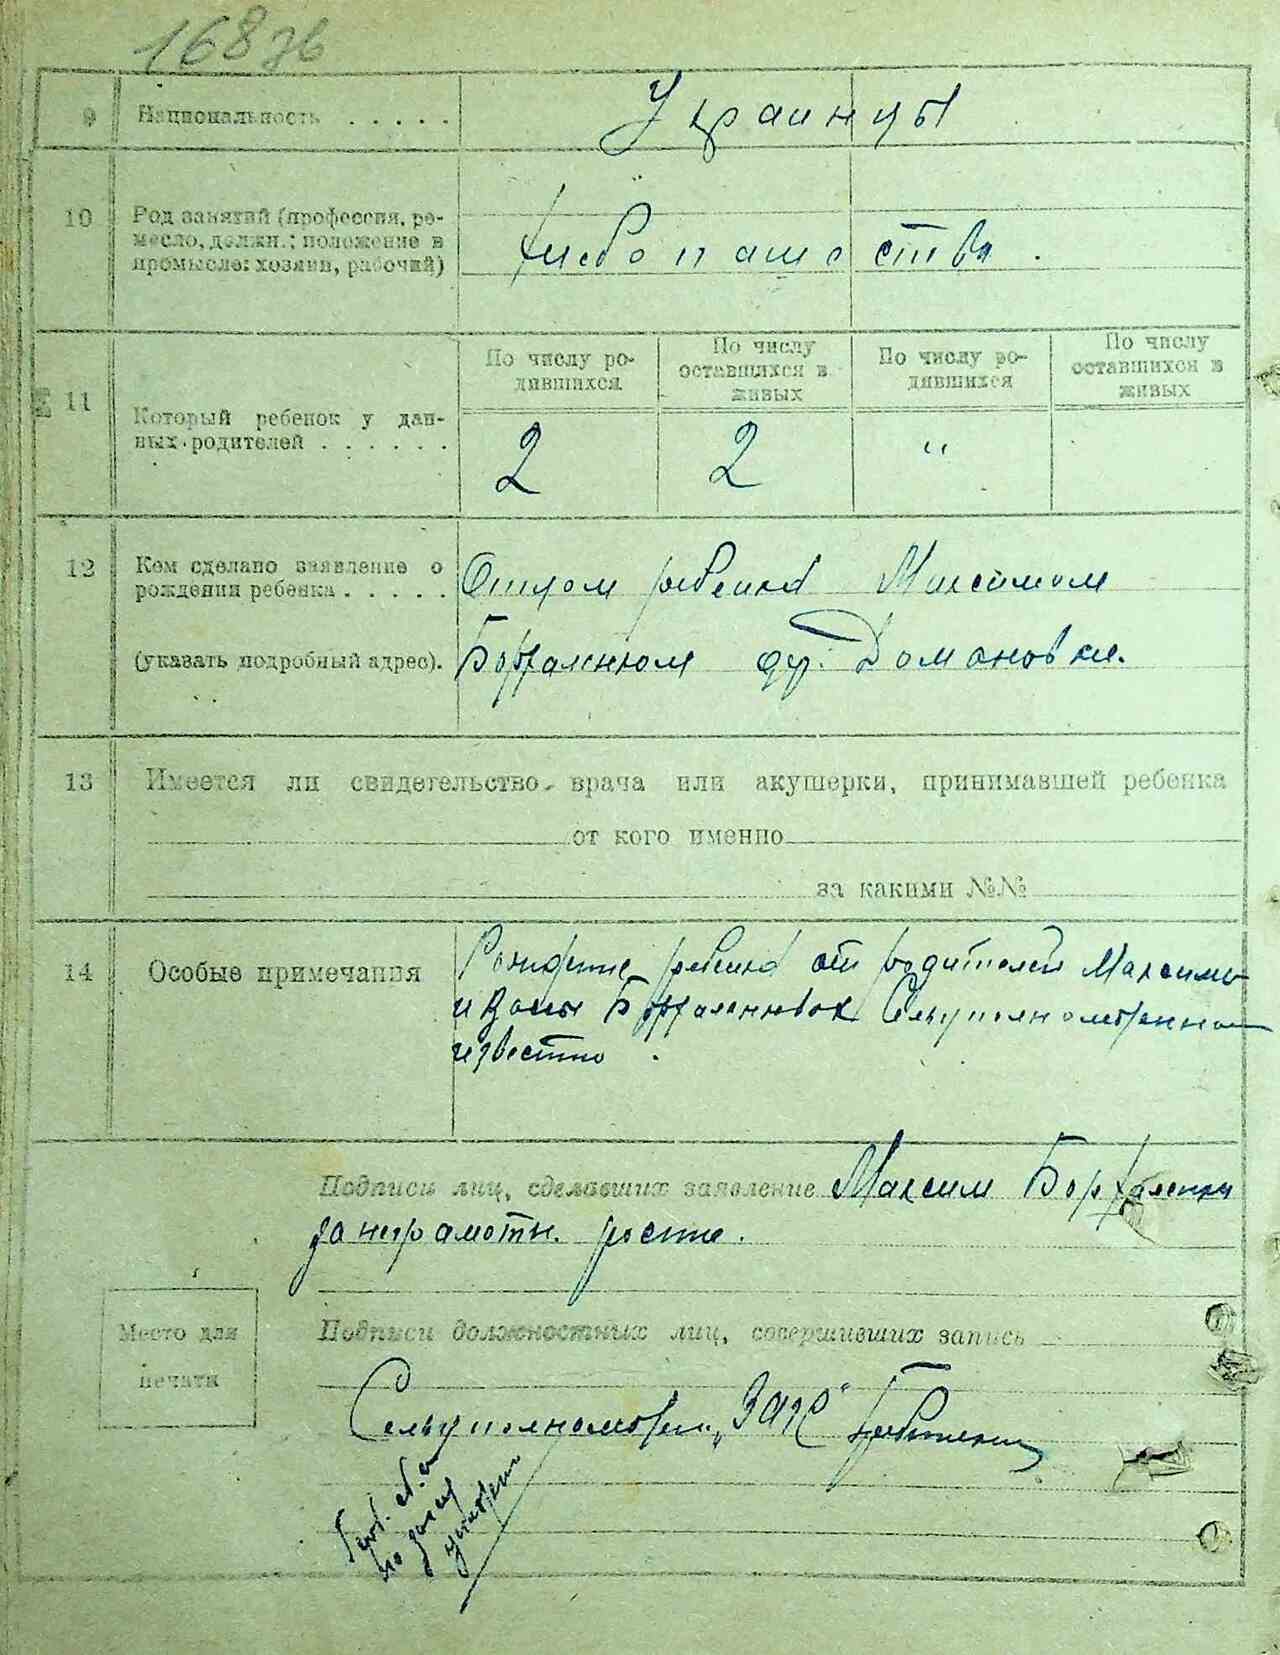 168 зв
9 Национальность . . . . . Украинцы
10 Род занятий (профессия, ре-
месло, должн.; положение в
промысле: хозяин, рабочий) хлебопашество.
По числу ро-
дившихся
По числу
оставшихся в
живых
По числу ро-
дившихся
По числу
оставшихся в
живых
11 Который ребенок у дан-
ных родителей . . . . . . 2 2 "
12 Кем сделано заявление о
рождении ребенка . . . . . Отцом ребенка Максимом
(указать подробный адрес). дер. Домановки.
13 Имеется ли свидетельство врача или акушерки, принимавшей ребенка
от кого именно
за какими №№
14 Особые примечания
Рождение ребенка от родителей Максима
и
известно.
Подписи лиц, сделавших заявление Максим
за неграмотн. росп.
Место для
печати
Подписи должностных лиц, совершивших запись
Сельуполномочен. „ЗАГС"